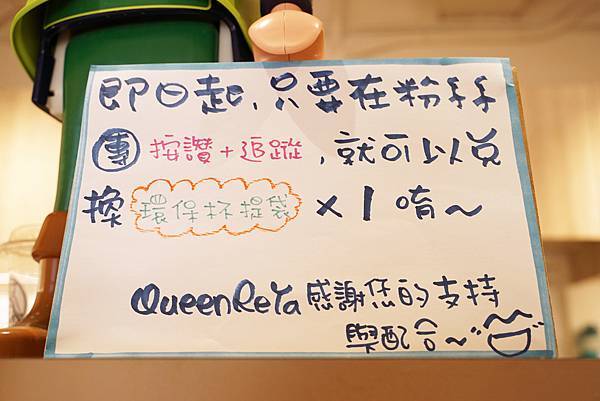 即日起,只要在粉絲
團按讚+追蹤,就可以兌
換環保杯提袋x1唷~
QueenReYa感謝您的支持
與配合~